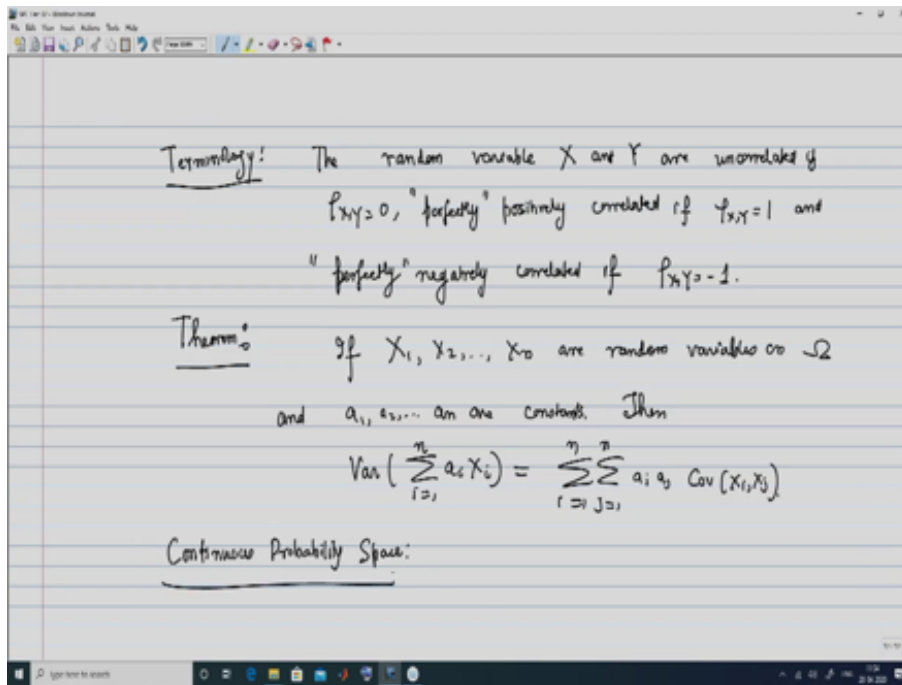 File Edit View Insert Actions Tools Help
Page Width
Terminology: The random variable X and Y are uncorrelated if
ρX,Y=0, "perfectly" positively correlated if ρX,Y=1 and
"perfectly" negatively correlated if ρX,Y=-1.
Theorem: If X1, X2,.., Xn are random variables on Ω
and a1, a2,... an are constants. Then
Var(∑_{i=1}^{n} ai Xi) = ∑_{i=1}^{n} ∑_{j=1}^{n} ai aj Cov(Xi,Xj)
Continuous Probability Space:
Type here to search